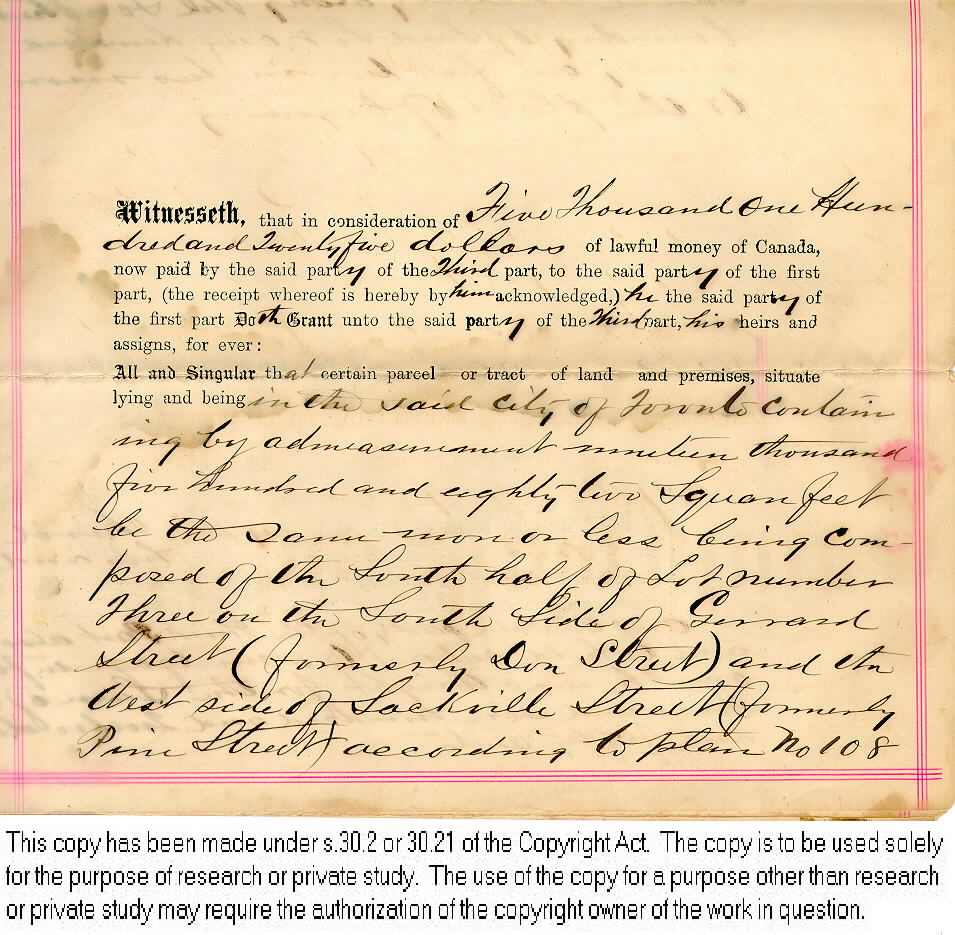 Witnesseth, that in consideration of Five Thousand One Hun-
dred and Twenty five dollars of lawful money of Canada,
now paid by the said party of the Third part, to the said party of the first
part, (the receipt whereof is hereby by him acknowledged,) he the said party of
the first part Doth Grant unto the said party of the Third part, his heirs and
assigns, for ever:
All and Singular that certain parcel or tract of land and premises, situate
lying and being in the said city of Toronto contain
ing by admeasurement nineteen thousand
five hundred and eighty two Square feet
be the same more or less being com-
posed of the South half of Lot number
Three on the South Side of Gerrard
Street (formerly Don Street) and the
West side of Sackville Street (formerly
Pine Street) according to plan No 108
This copy has been made under s.30.2 or 30.21 of the Copyright Act. The copy is to be used solely
for the purpose of research or private study. The use of the copy for a purpose other than research
or private study may require the authorization of the copyright owner of the work in question.